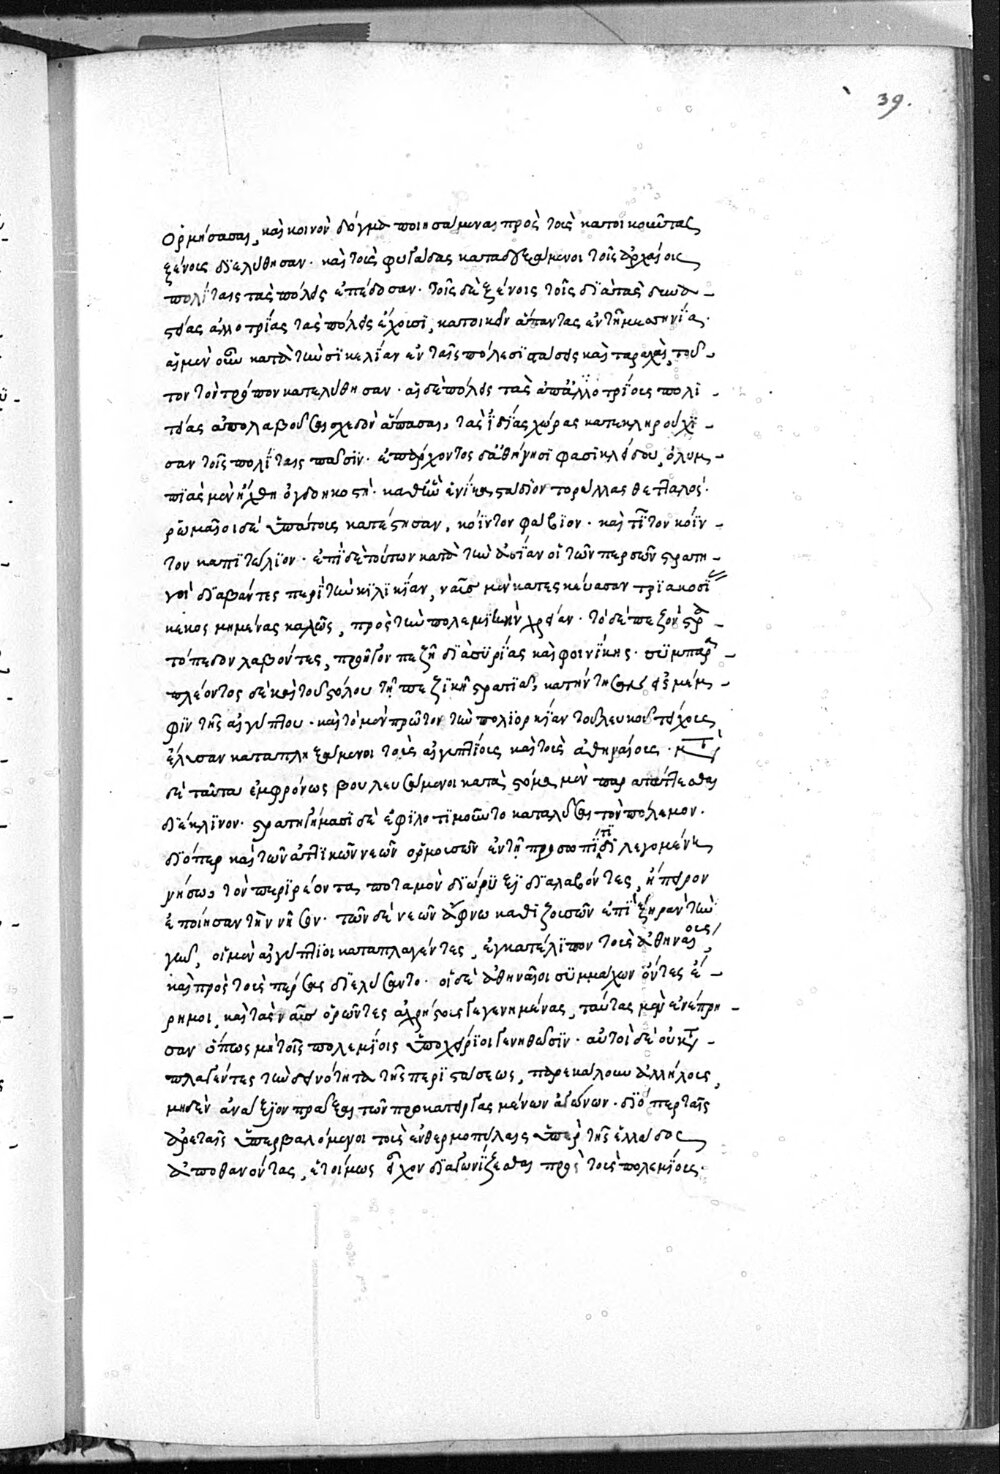 39.
ὁρμήσασαι, καὶ κοινὸν δόγμα ποιησάμεναι πρὸς τοὺς κατοικοῦντας
ξένους διελύθησαν· καὶ τοὺς φυγάδας καταδεξάμενοι τοῖς ἀρχαίοις
πολίταις τὰς πόλεις ἐπέδοσαν· τοῖς δὲ ξένοις τοῖς διὰ τὰς δυνα-
στείας ἀλλοτρίας τὰς πόλεις ἔχουσι, κατοικεῖν ἅπαντας ἐν τῇ μεσσηνίᾳ.
αἱ μὲν οὖν κατὰ τὴν σικελίαν ἐν ταῖς πόλεσι στάσεις καὶ ταραχαὶ, τοῦ-
τον τὸν τρόπον κατελύθησαν· αἱ δὲ πόλεις τὰς ἀπαλλοτρίους πολι-
τείας ἀπολαβοῦσαι σχεδὸν ἅπασαι, τὰς ἰδίας χώρας κατεκληρούχι-
σαν τοῖς πολίταις πᾶσιν· ἐπ' ἄρχοντος δ' ἀθήνησι φασικλείδου, ὀλυμ-
πιὰς μὲν ἤχθη ὀγδοηκοστὴ· καθ' ἣν ἐνίκα στάδιον τορύλλας θετταλός·
ῥωμαῖοι δ' ὑπάτους κατέστησαν, κόϊντον φάβιον· καὶ τίτον κόϊν-
τον καπιτωλῖον· ἐπὶ δὲ τούτων κατὰ τὴν ἀσίαν οἱ τῶν περσῶν στρατη-
γοὶ διαβάντες περὶ τὴν κιλικίαν, ναῦς μὲν κατεσκεύασαν τριακοσί-
κεκοσμημένας καλῶς, πρὸς τὴν πολεμικὴν χρείαν· τὸ δὲ πεζὸν στρα-
τόπεδον λαβόντες, προῆγον πεζῇ διὰ συρίας καὶ φοινίκης· συμπαρα-
πλέοντος δὲ καὶ τοῦ στόλου τῇ πεζικῇ στρατιᾷ, κατήντησαν εἰς μέμ-
φιν τῆς αἰγύπτου· καὶ τὸ μὲν πρῶτον τὴν πολιορκίαν τοῦ λευκοῦ τείχους
ἔλυσαν καταπληξάμενοι τοὺς αἰγυπτίους καὶ τοὺς ἀθηναίους· μετὰ
δὲ ταῦτα ἐμφρόνως βουλευσάμενοι κατὰ στόμα μὲν παρατάττεσθαι
διέκλινον· στρατηγήμασι δὲ ἐφιλοτιμοῦντο καταλῦσαι τὸν πόλεμον·
διόπερ καὶ τῶν ἀττικῶν νεῶν ὁρμουσῶν ἐν τῇ προσωπίτιδι λεγομένῃ
νήσῳ, τὸν περιρέοντα ποταμὸν διώρυξι διαλαβόντες, ἤπειρον
ἐποίησαν τὴν νῆσον· τῶν δὲ νεῶν ἄφνω καθιζουσῶν ἐπὶ ξηρὰν τὴν
γῆν, οἱ μὲν αἰγύπτιοι καταπλαγέντες, ἐγκατέλιπον τοὺς ἀθηναίους,
καὶ πρὸς τοὺς πέρσας διελύσαντο· οἱ δὲ ἀθηναῖοι συμμάχων ὄντες ἔ-
ρημοι, καὶ τὰς ναῦς ὁρῶντες ἀχρήστους γεγενημένας, ταύτας μὲν ἐνέπρη-
σαν ὅπως μὴ τοῖς πολεμίοις ὑποχείριοι γενηθῶσιν· αὐτοὶ δὲ οὐ κατα-
πλαγέντες τὴν δεινότητα τῆς περιστάσεως, παρεκάλουν ἀλλήλους,
μηδὲν ἀνάξιον πρᾶξαι τῶν προκατειργασμένων ἀγώνων· διόπερ ταῖς
ἀρεταῖς ὑπερβαλόμενοι τοὺς ἐν θερμοπύλαις ὑπὲρ τῆς ἑλλάδος
ἀποθανόντας, ἑτοίμως εἶχον διαγωνίζεσθαι πρὸς τοὺς πολεμίους·